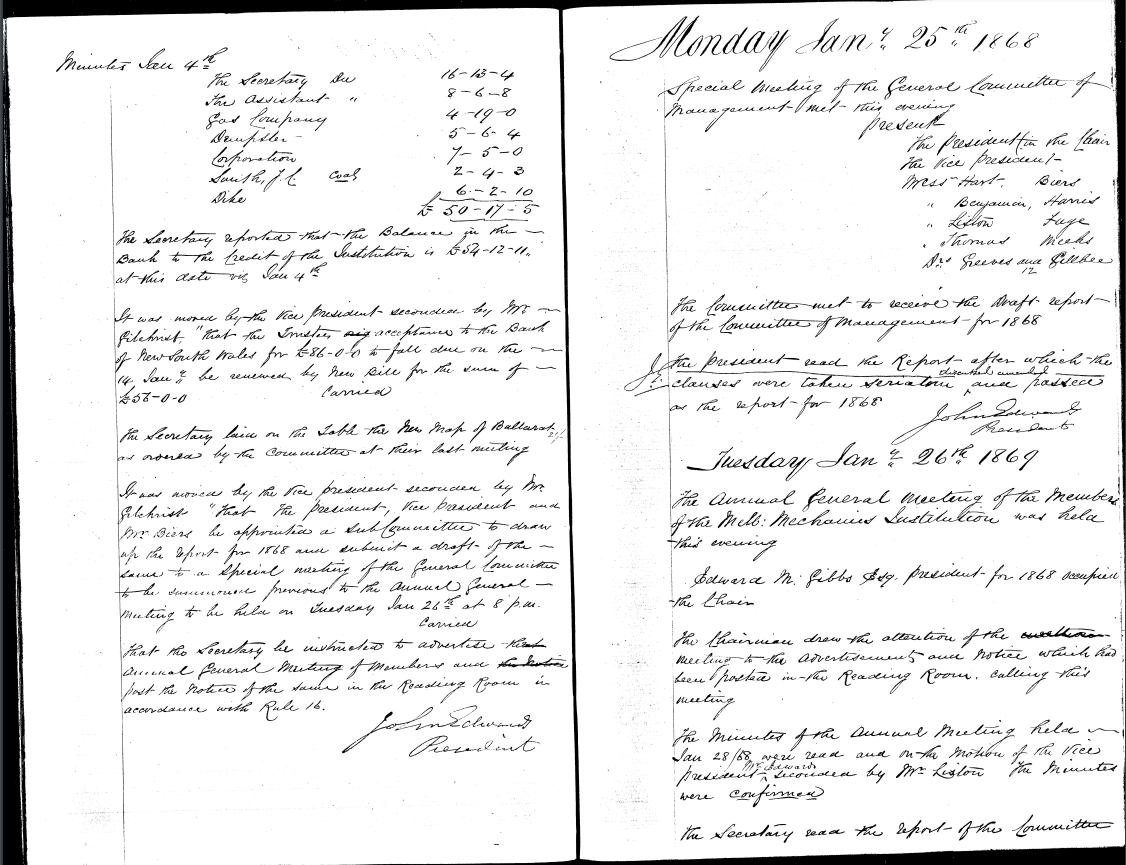 Minutes Jan 4th
The Secretary Due 16-13-4
The Assistant " 8-6-8
Gas Company 4-19-0
Dempster 5-6-4
Corporation 7-5-0
Smith, J.C. coal 2-4-3
Dike 6-2-10
£ 50-17-5
The Secretary reported that the Balance in the
Bank to the Credit of the Institution is £54-12-11,
at this date viz Jan 4th
It was moved by the Vice President seconded by Mr
Gilchrist, "that the Trustees acceptance to the Bank
of New South Wales for £86-0-0 to fall due on the
14 Jany be renewed by New Bill for the sum of
£56-0-0 Carried
The Secretary laid on the Table the New Map of Ballarat 21/-
as ordered by the Committee at their last meeting
It was moved by the Vice President seconded by Mr
Gilchrist "That the President, Vice President and
Mr Biers be appointed a Sub Committee to draw
up the report for 1868 and submit a draft of the
same to a Special meeting of the General Committee
to be summoned previous to the Annual General
meeting to be held on Tuesday Jan 26th at 8 p.m.
Carried
That the Secretary be instructed to advertise the
Annual General Meeting of Members and
post the Notice of the same in the Reading Room in
accordance with Rule 16.
John Edwards
President
Monday Jany. 25th 1868
Special Meeting of the General Committee of
Management met this evening
Present
The President (in the Chair
The Vice President
Messrs Hart, Biers
" Benjamin, Harris
" Liston Fuge
" Thomas Meeks
Drs Greeves and Gillbee
12
The Committee met to receive the Draft report
of the Committee of Management for 1868
The President read the Report after which the
discussed amended
clauses were taken seriatim and passed
as the report for 1868
John Edwards
President
Tuesday Jany 26th 1869
The Annual General Meeting of the Members
of the Melb: Mechanics Institution was held
this evening
Edward M. Gibbs Esq. President for 1868 occupied
the Chair
The Chairman drew the attention of the
meeting to the Advertisement and Notice which had
been posted in the Reading Room. calling this
meeting
The Minutes of the Annual Meeting held
Jan 28/68 were read and on the Motion of the Vice
Mr Edwards
President seconded by Mr Liston The Minutes
were confirmed
The Secretary read the report of the Committee